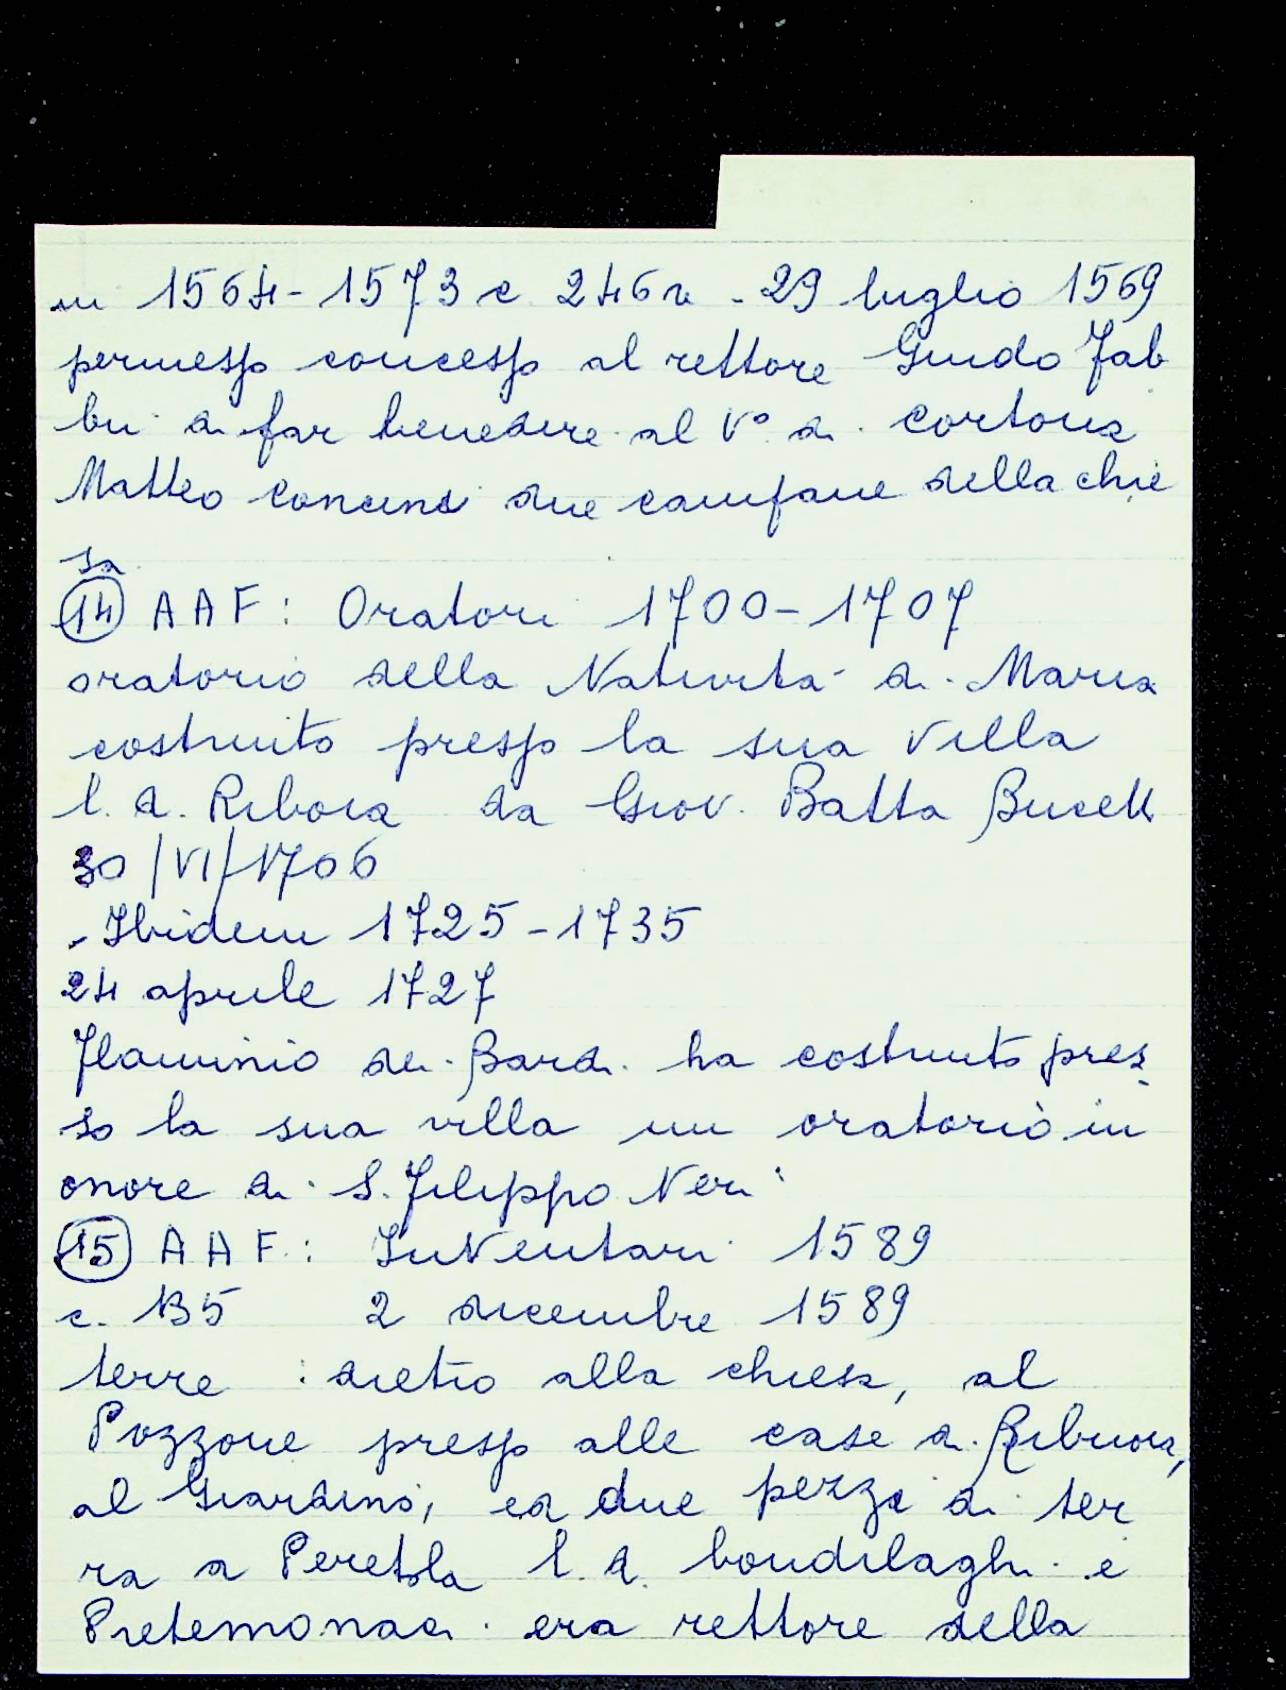 in 1564-1573 c 246v - 29 luglio 1569
permesso concesso al rettore Guido Fab
bri di far benedire al V° di Cortona
Matteo Concini due campane della chie
sa
14 AAF: Oratori 1700-1707
oratorio della Natività di Maria
costruito presso la sua villa
l. d. Riboia da Giov. Batta Bucelli
30/VI/1706
- Ibidem 1725-1735
24 aprile 1727
Flaminio dei Bardi ha costruito pres
so la sua villa un oratorio in
onore di S. Filippo Neri
15 AAF: Inventari 1589
c. 135 2 dicembre 1589
terre : dietro alla chiesa, al
Pozzone presso alle case di Ribuoia,
al Giardino, ed due pezzi di ter
ra a Peretola l. d. bondilaghi e
Pretemonaci. era rettore della